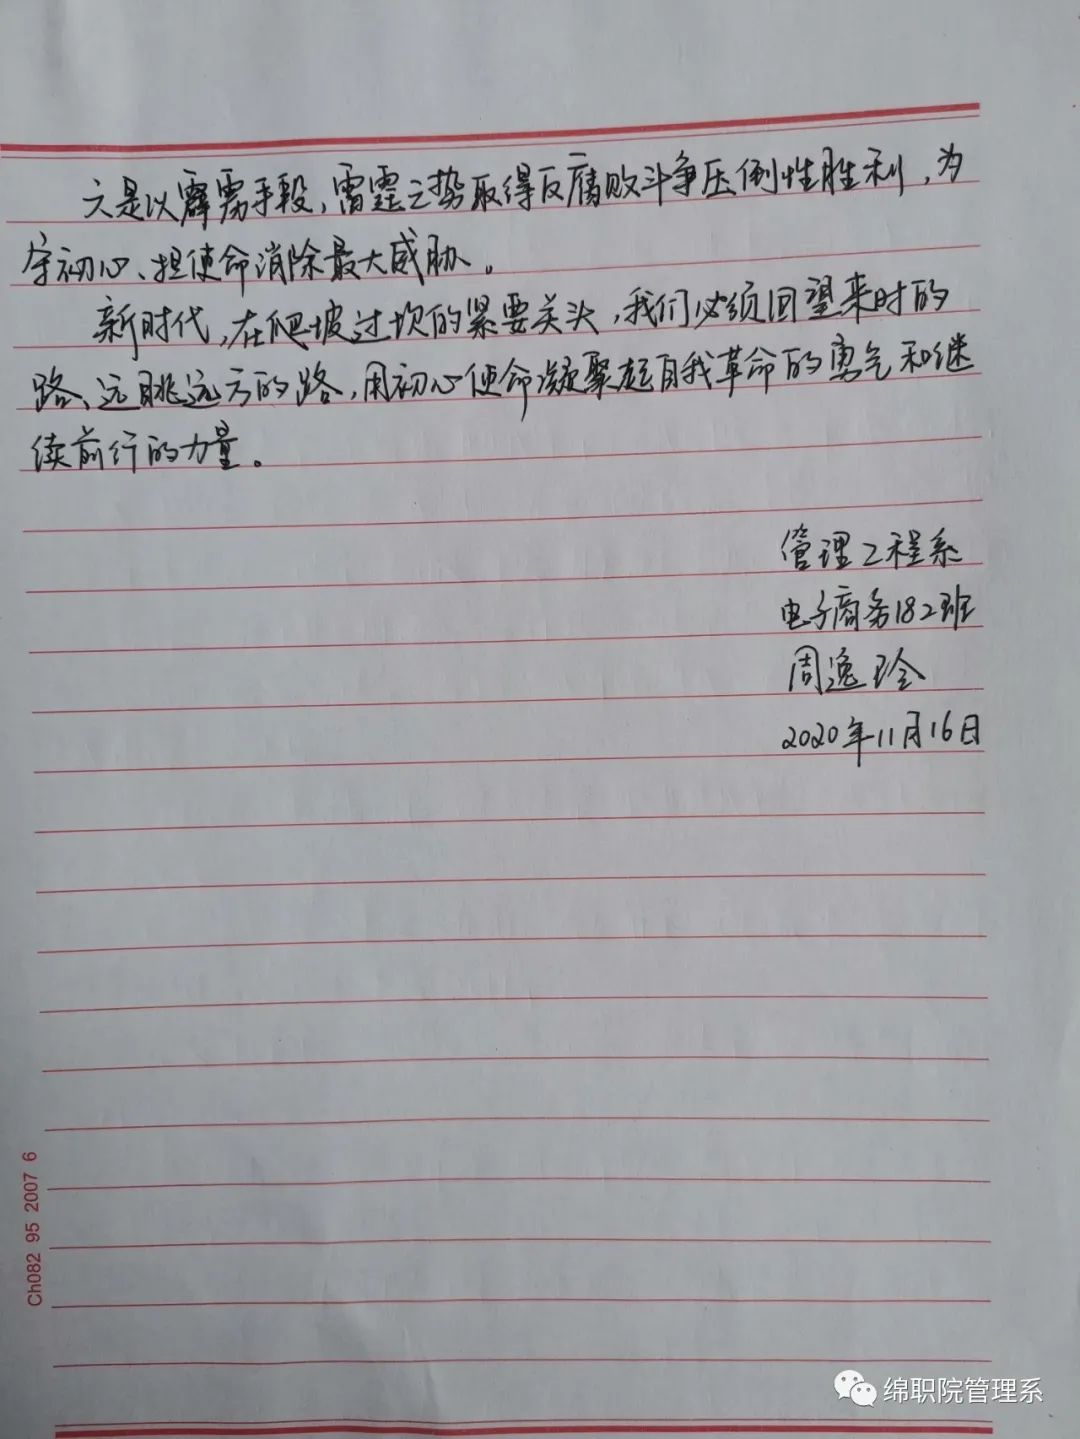 六是以霹雳手段，雷霆之势取得反腐败斗争压倒性胜利，为
守初心、担使命消除最大威胁。
新时代，在爬坡过坎的紧要关头，我们必须回望来时的
路、远眺远方的路，用初心使命凝聚起自我革命的勇气和继
续前行的力量。
管理工程系
电子商务182班
周逸玲
2020年11月16日
Ch082 95 2007 6
绵职院管理系